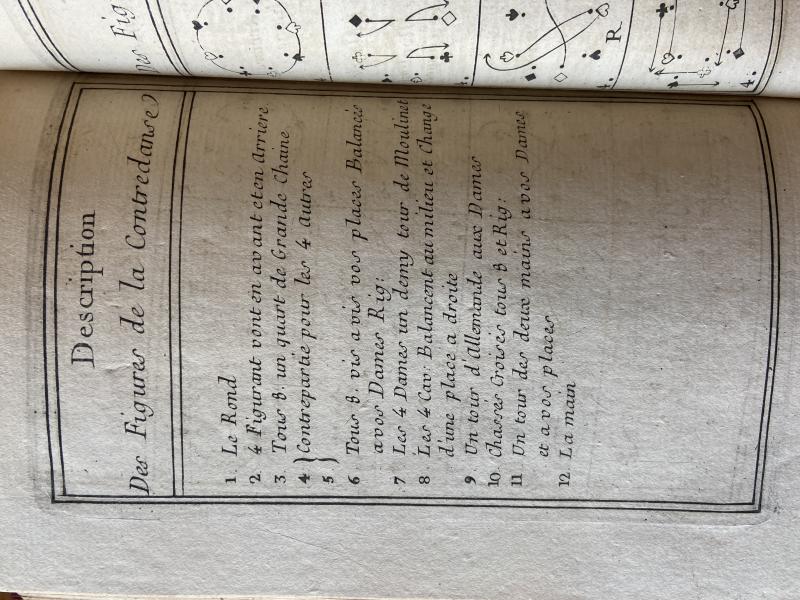 Des Fig
R
4.
4.
4.
Description
Des Figures de la Contredanse
1. Le Rond
2. 4 Figurant vont en avant et en arriere
3 Tous 8. un quart de Grande Chaine
4 } Contrepartie pour les 4 autres
5
6 Tous 8. vis a vis vos places Balancés
a vos Dames Rig:
7 Les 4 Dames un demy tour de Moulinet
8 Les 4 Cav: Balancent au milieu et Change
d'une place a droite
9 Un tour d'Allemande aux Dames
10 Chassés Croisés tous 8 et Rig:
11 Un tour des deux mains a vos Dames
et a vos places
12 La main